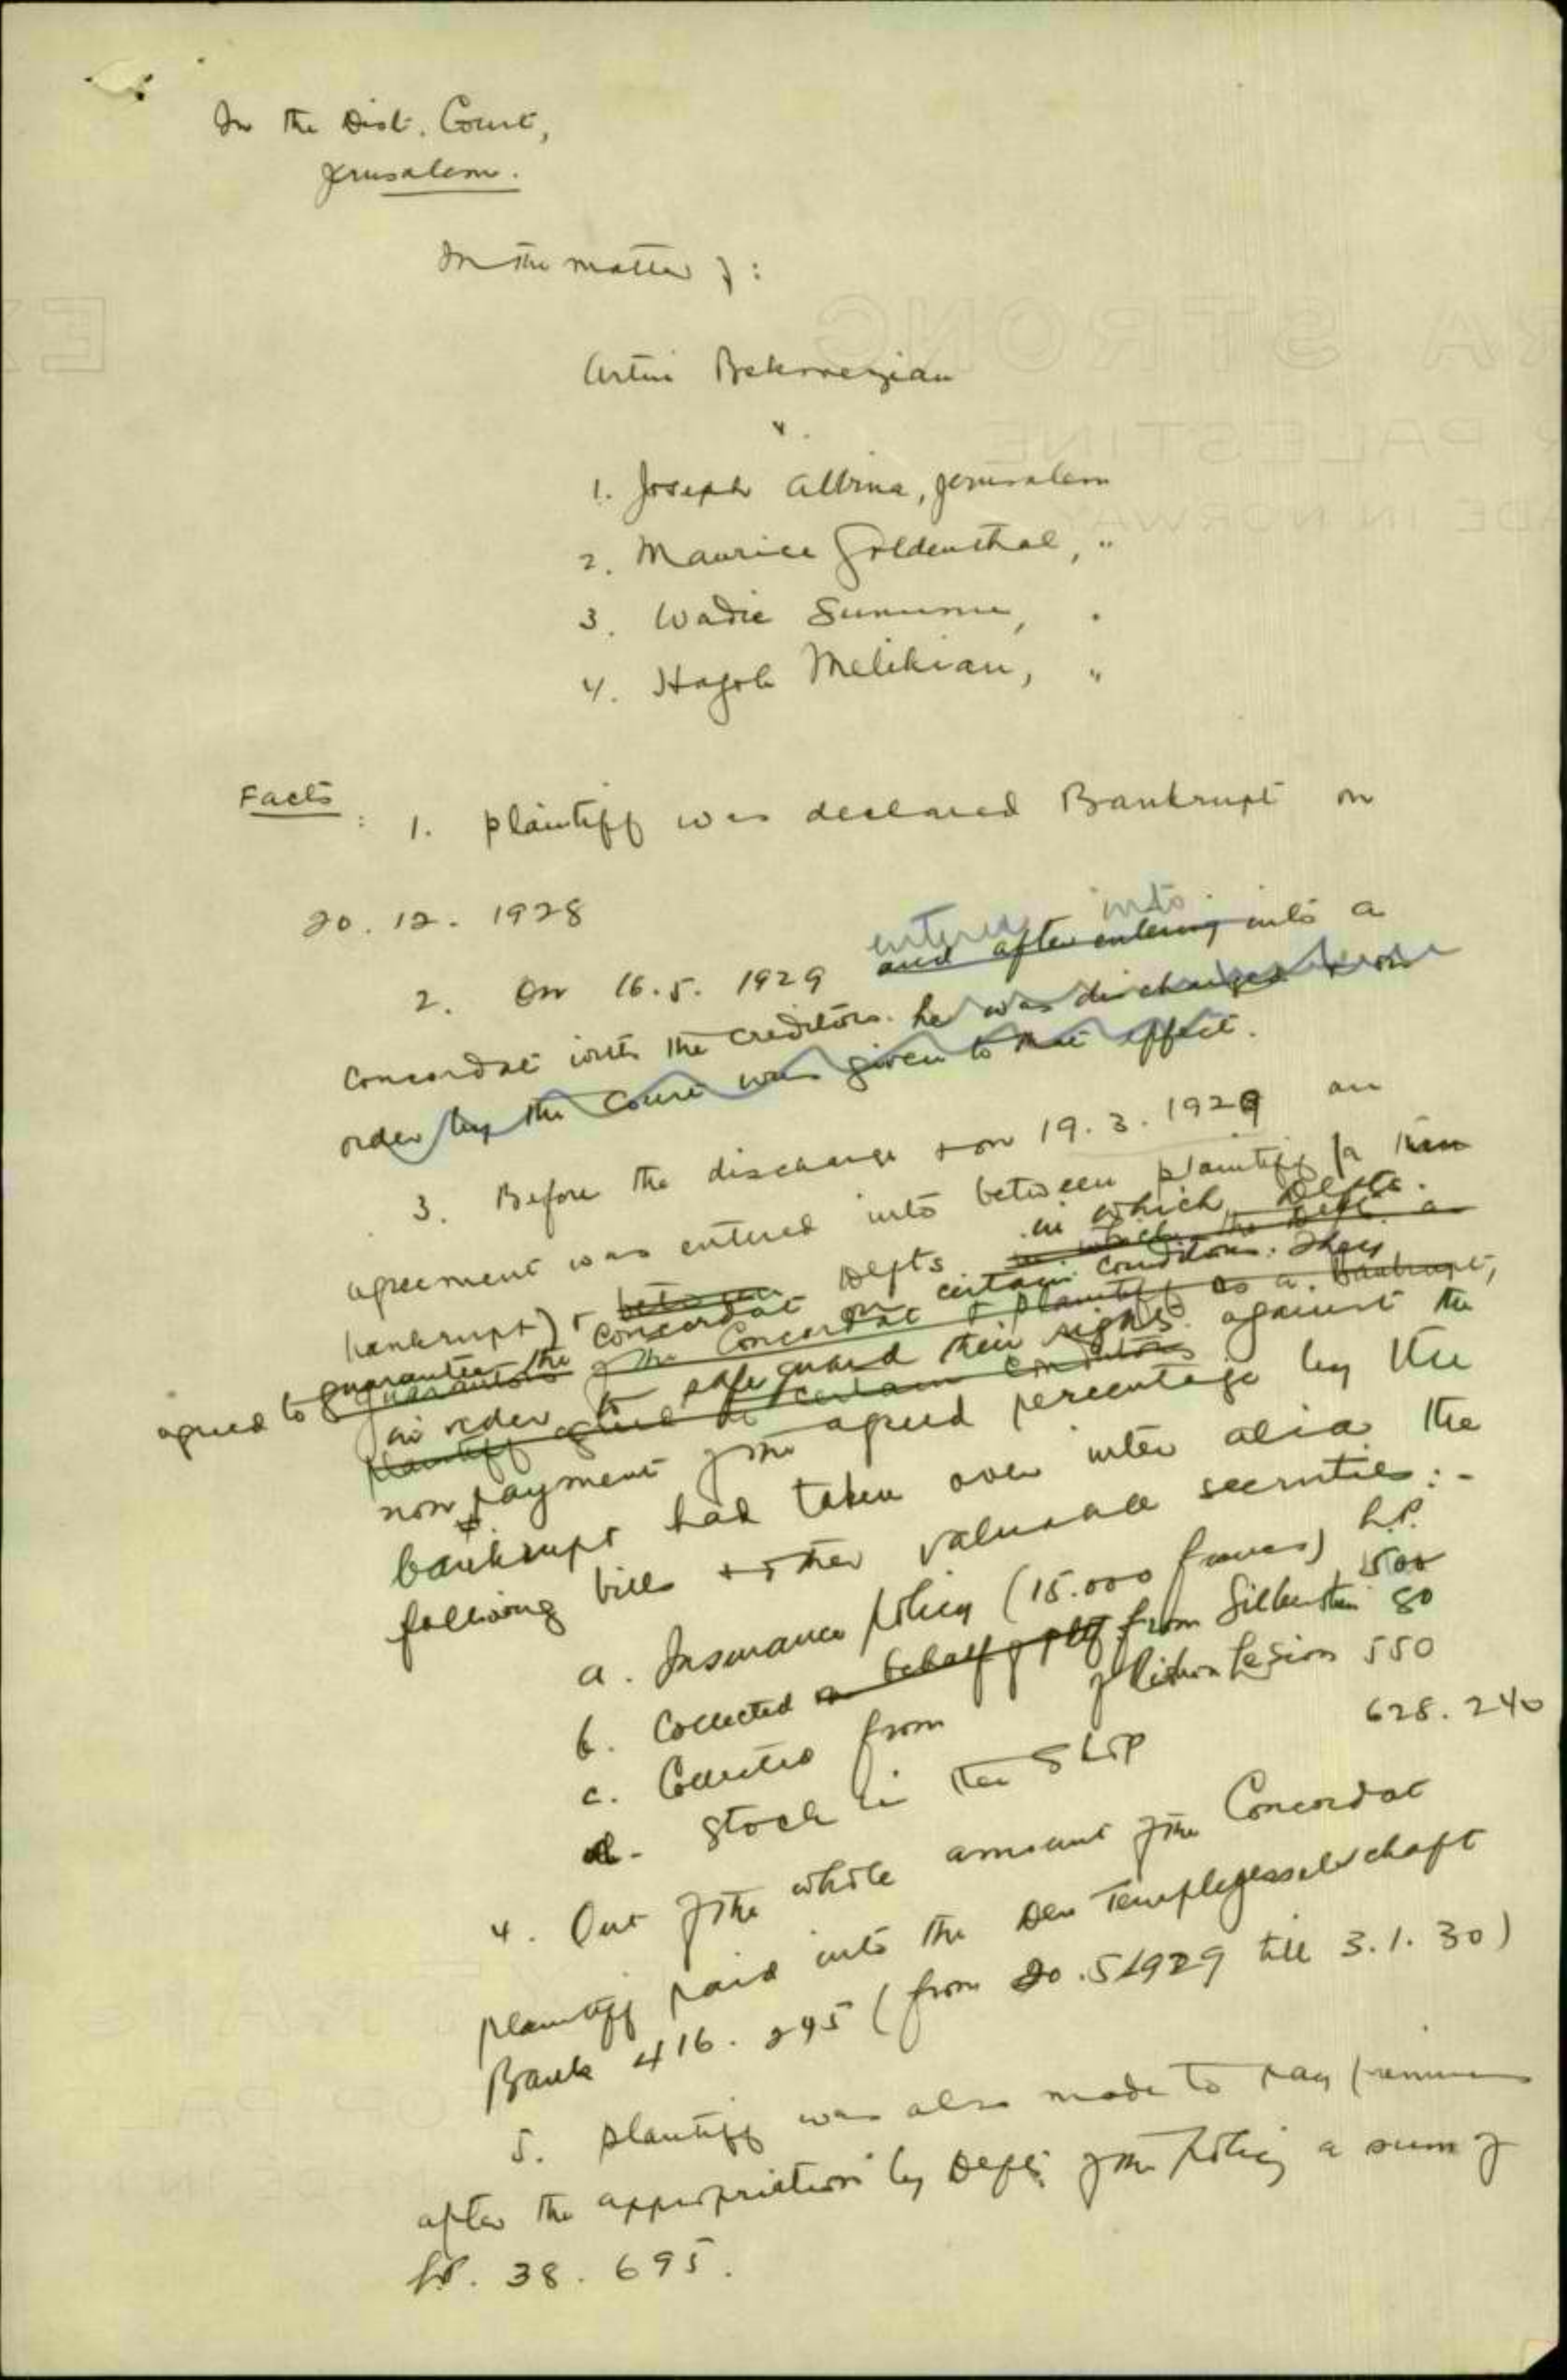 In the Dist. Court,
Jerusalem.
In the matter of :
Artin Bekmezian
v.
1. Joseph Albina, Jerusalem
2. Maurice Goldenthal, "
3. Wadie Sununu, "
4. Hagob Melikian, "
Facts : 1. Plaintiff was declared Bankrupt on
20. 12. 1928
entered into
2. On 16.5. 1929 and after entering into a
Concordat with the creditors. he was discharged & on
order by the Court was given to that effect.
3. Before the discharge & on 19. 3. 1929 an
agreement was entered into between plaintiff (a
bankrupt) & between Defts in which Defts.
in which the Deft. a
guarantee the concordat on certain conditions. They
agreed to guarantors of the Concordat & plaintiff as a Bankrupt,
in order to safeguard their rights against the
plaintiff agreed at certain conditions
non payment of the agreed percentage by the
bankrupt had taken over inter alia the
following bills & other valuable securities : -
L.P.
a. Insurance policy (15.000 francs) 500
b. Collected on behalf of plff from Silberstein 80
c. Collected from Rishon Lesion 550
d. Stock in the Shop 628. 240
4. Out of the whole amount of the Concordat
plaintiff paid into the Der Templegesselschaft
Bank 416. 295 (from 20.5.1929 till 3.1.30)
5. Plaintiff was also made to pay premiums
after the appropriation by Defts. of the Policy a sum of
LP. 38. 695.